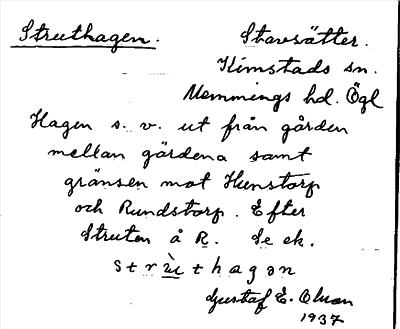 Struthagen. Stavsätter.
Kimstads sn.
Memmings hd. Ögl
Hagen s. v. ut från gården
mellan gärdena samt
gränsen mot Hunstorp
och Rundstorp. Efter
Struten å R. Se ek.
strùthagən
Gustaf E. Olson
1937